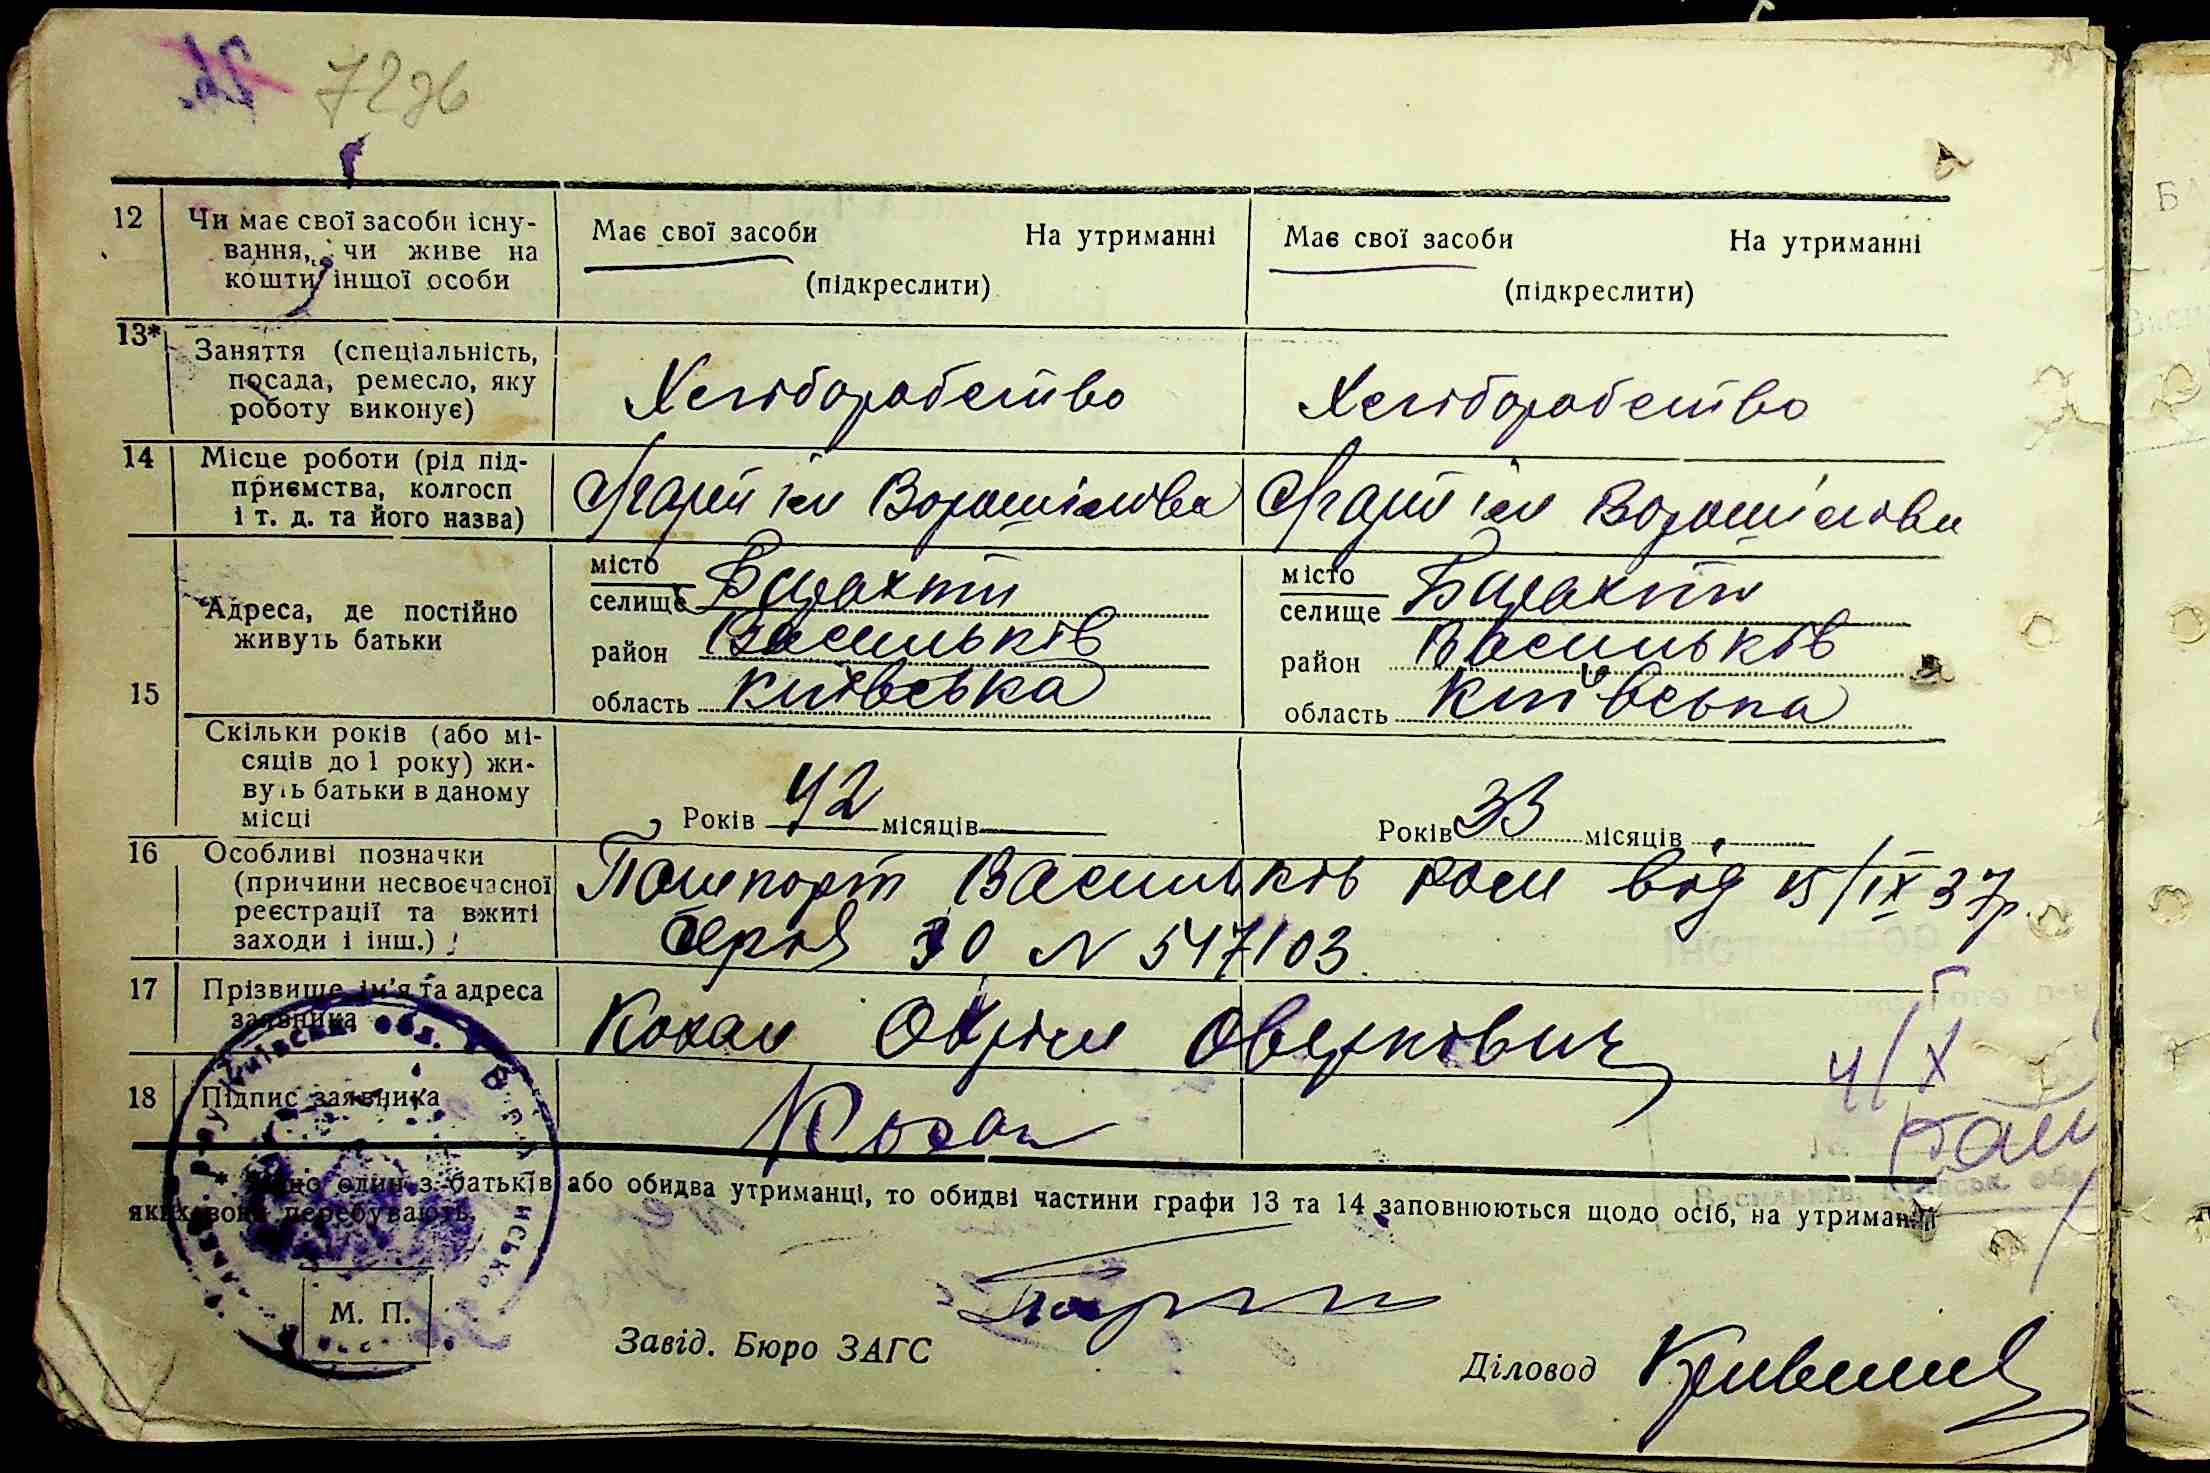 72зв
12 Чи має свої засоби існу-
вання, чи живе на
кошти іншої особи
Має свої засоби На утриманні
(підкреслити)
Має свої засоби На утриманні
(підкреслити)
13* Заняття (спеціальність,
посада, ремесло, яку
роботу виконує)
Хліборобство
Хліборобство
14 Місце роботи (рід під-
приємства, колгосп
і т. д. та його назва)
Артіль ім Ворошилова
Артіль ім Ворошилова
15 Адреса, де постійно
живуть батьки
місто
селище Барахти
район Васильків
область Київська
місто
селище Барахти
район Васильків
область Київська
Скільки років (або мі-
сяців до 1 року) жи-
вуть батьки в даному
місці
Років 42 місяців
Років 33 місяців
16 Особливі позначки
(причини несвоєчасної
реєстрації та вжиті
заходи і інш.)
Пашпорт Васильків від 15/IX 37р.
серія ЗО N 547103.
17 Прізвище, ім'я та адреса
заявника
Кохан Охрім Оверкович
18 Підпис заявника
Кохан
4/X
* один з батьків або обидва утриманці, то обидві частини графи 13 та 14 заповнюються щодо осіб, на утриманні
яких вони перебувають.
М. П.
Завід. Бюро ЗАГС
Діловод